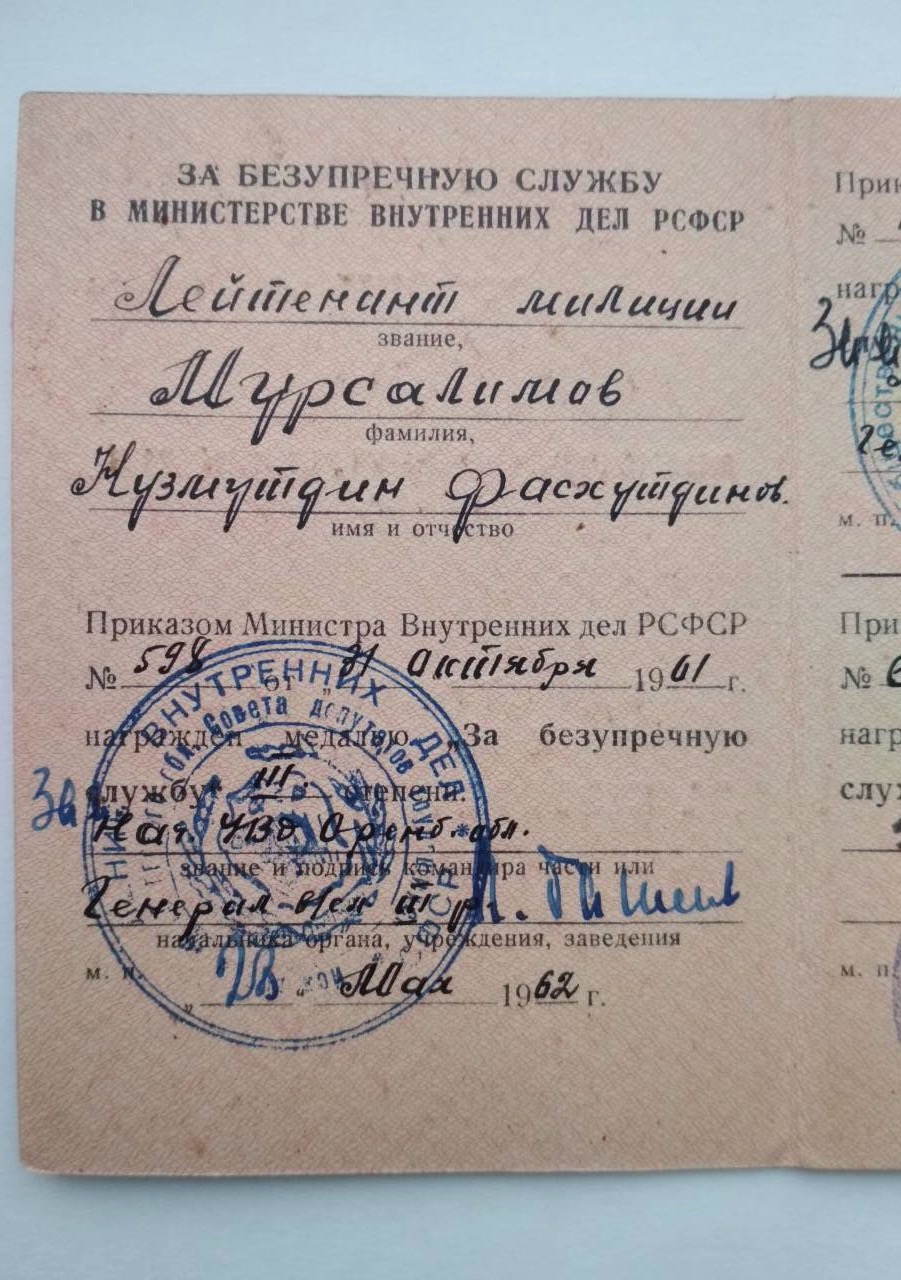 ЗА БЕЗУПРЕЧНУЮ СЛУЖБУ
В МИНИСТЕРСТВЕ ВНУТРЕННИХ ДЕЛ РСФСР
Лейтенант милиции
звание,
Мурсалимов
фамилия,
Кузмутдин Фасхутдинов.
имя и отчество
Приказом Министра Внутренних дел РСФСР
№ 598 от „31 Октября 1961 г.
награжден медалью „За безупречную
службу" III. степени.
Нач. УВД Оренб. обл.
звание и подпись командира части или
Генерал в/сл III р.
начальника органа, учреждения, заведения
м. п.
„ " Мая 1962 г.
ВНУТРЕННИХ ДЕЛ
Совета депутатов
Прик
№
нагр
м. п.
Прик
№ 6
нагр
служ
м. п.